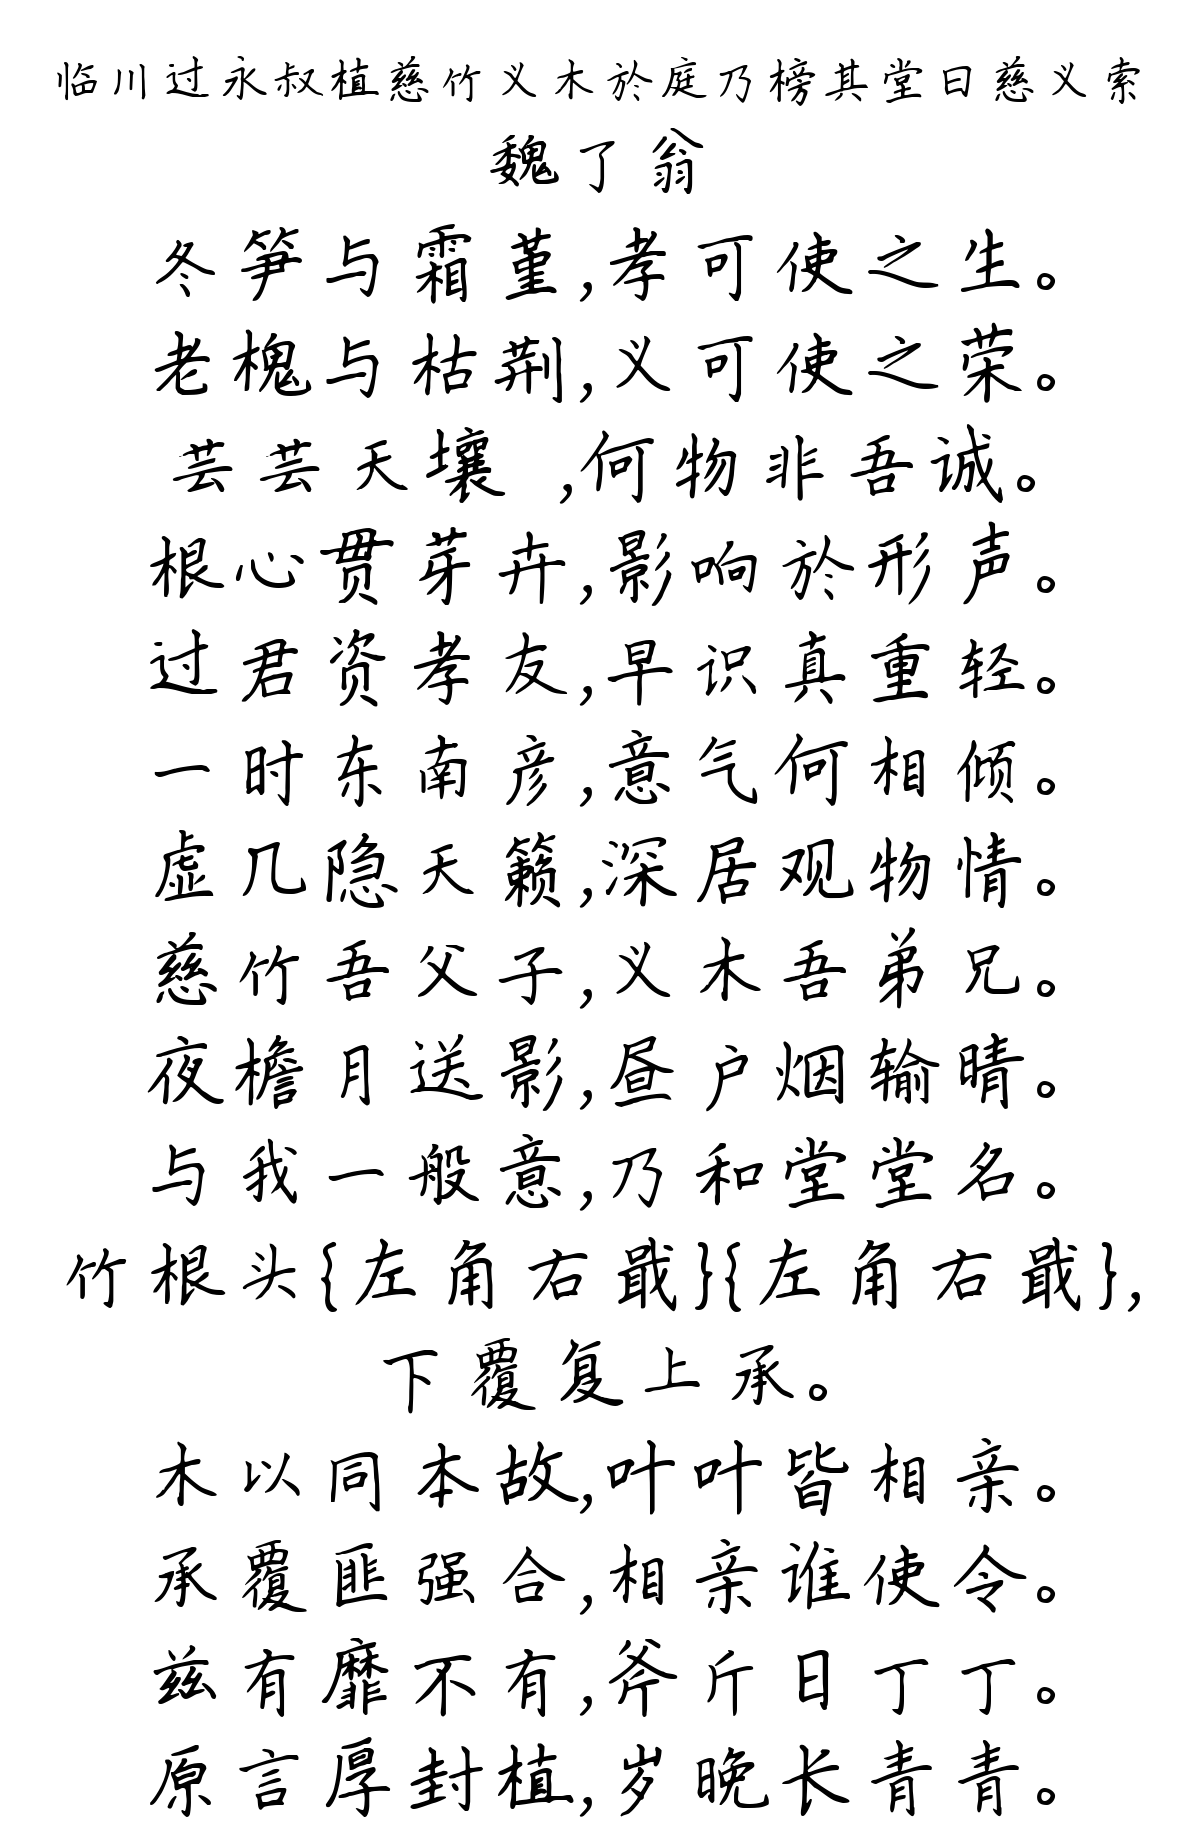 临川过永叔植慈竹义木於庭乃榜其堂曰慈义索
魏了翁
冬笋与霜堇,孝可使之生。
老槐与枯荆,义可使之荣。
芸芸天壤 ,何物非吾诚。
根心贯芽卉,影响於形声。
过君资孝友,早识真重轻。
一时东南彦,意气何相倾。
虚几隐天籁,深居观物情。
慈竹吾父子,义木吾弟兄。
夜檐月送影,昼户烟输晴。
与我一般意,乃和堂堂名。
竹根头{左角右戢}{左角右戢},
下覆复上承。
木以同本故,叶叶皆相亲。
承覆匪强合,相亲谁使令。
兹有靡不有,斧斤日丁丁。
原言厚封植,岁晚长青青。